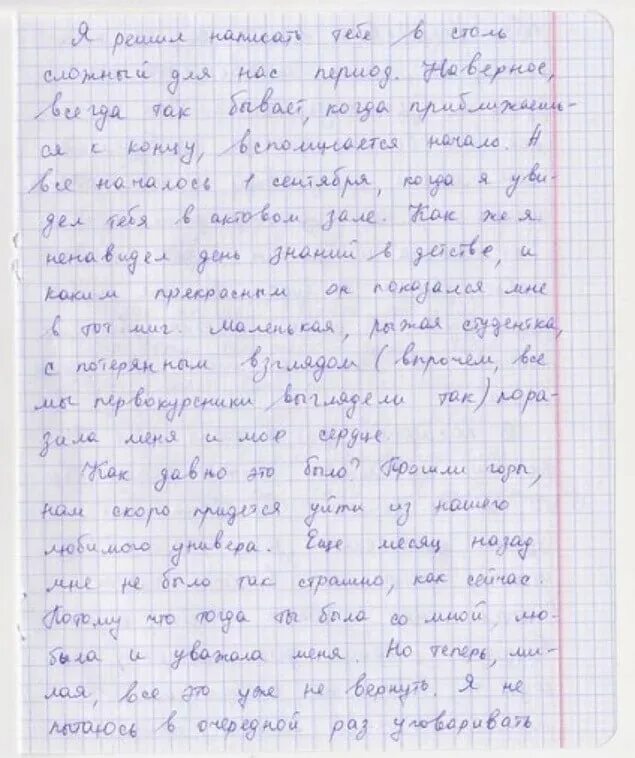 Я решил написать тебе в столь
сложный для нас период. Наверное,
всегда так бывает, когда приближаешь-
ся к концу, вспоминается начало. А
все началось 1 сентября, когда я уви-
дел тебя в актовом зале. Как же я
ненавидел день знаний в детстве, и
каким прекрасным он показался мне
в тот миг. Маленькая, рыжая студентка,
с потерянным взглядом (впрочем, все
мы первокурсники выглядели так) пора-
зила меня и мое сердце.
Как давно это было? Прошли годы,
нам скоро придется уйти из нашего
любимого универа. Еще месяц назад
мне не было так страшно, как сейчас.
Потому что тогда ты была со мной, лю-
была и уважала меня. Но теперь, ми-
лая, все это уже не вернуть. Я не
пытаюсь в очередной раз уговаривать